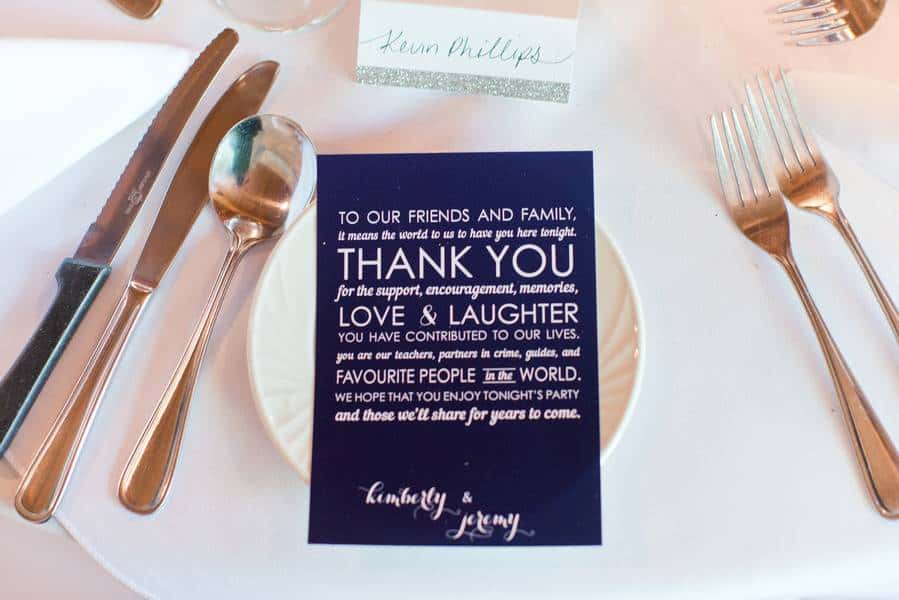 Kevin Phillips
TO OUR FRIENDS AND FAMILY,
it means the world to us to have you here tonight.
THANK YOU
for the support, encouragement, memories,
LOVE & LAUGHTER
YOU HAVE CONTRIBUTED TO OUR LIVES.
you are our teachers, partners in crime, guides, and
FAVOURITE PEOPLE in the WORLD.
WE HOPE THAT YOU ENJOY TONIGHT'S PARTY
and those we'll share for years to come.
kimberly &
jeremy